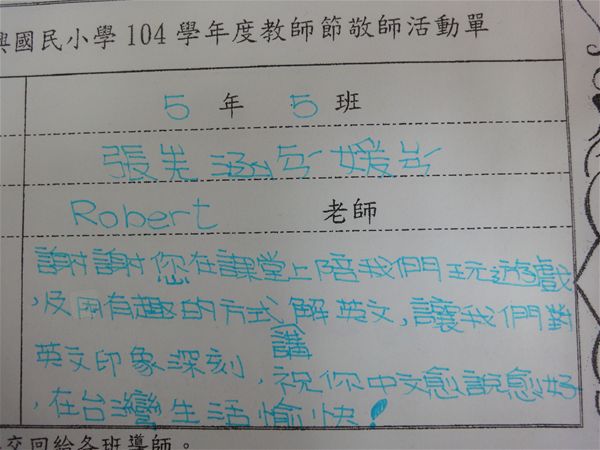 國民小學 104 學年度教師節敬師活動單
5 年 5 班
張 涵 媛
Robert 老師
謝謝您在課堂上陪我們玩遊戲
,及用有趣的方式講解英文,讓我們對
英文印象深刻,祝你中文愈說愈好
,在台灣生活愉快!
交回給各班導師。